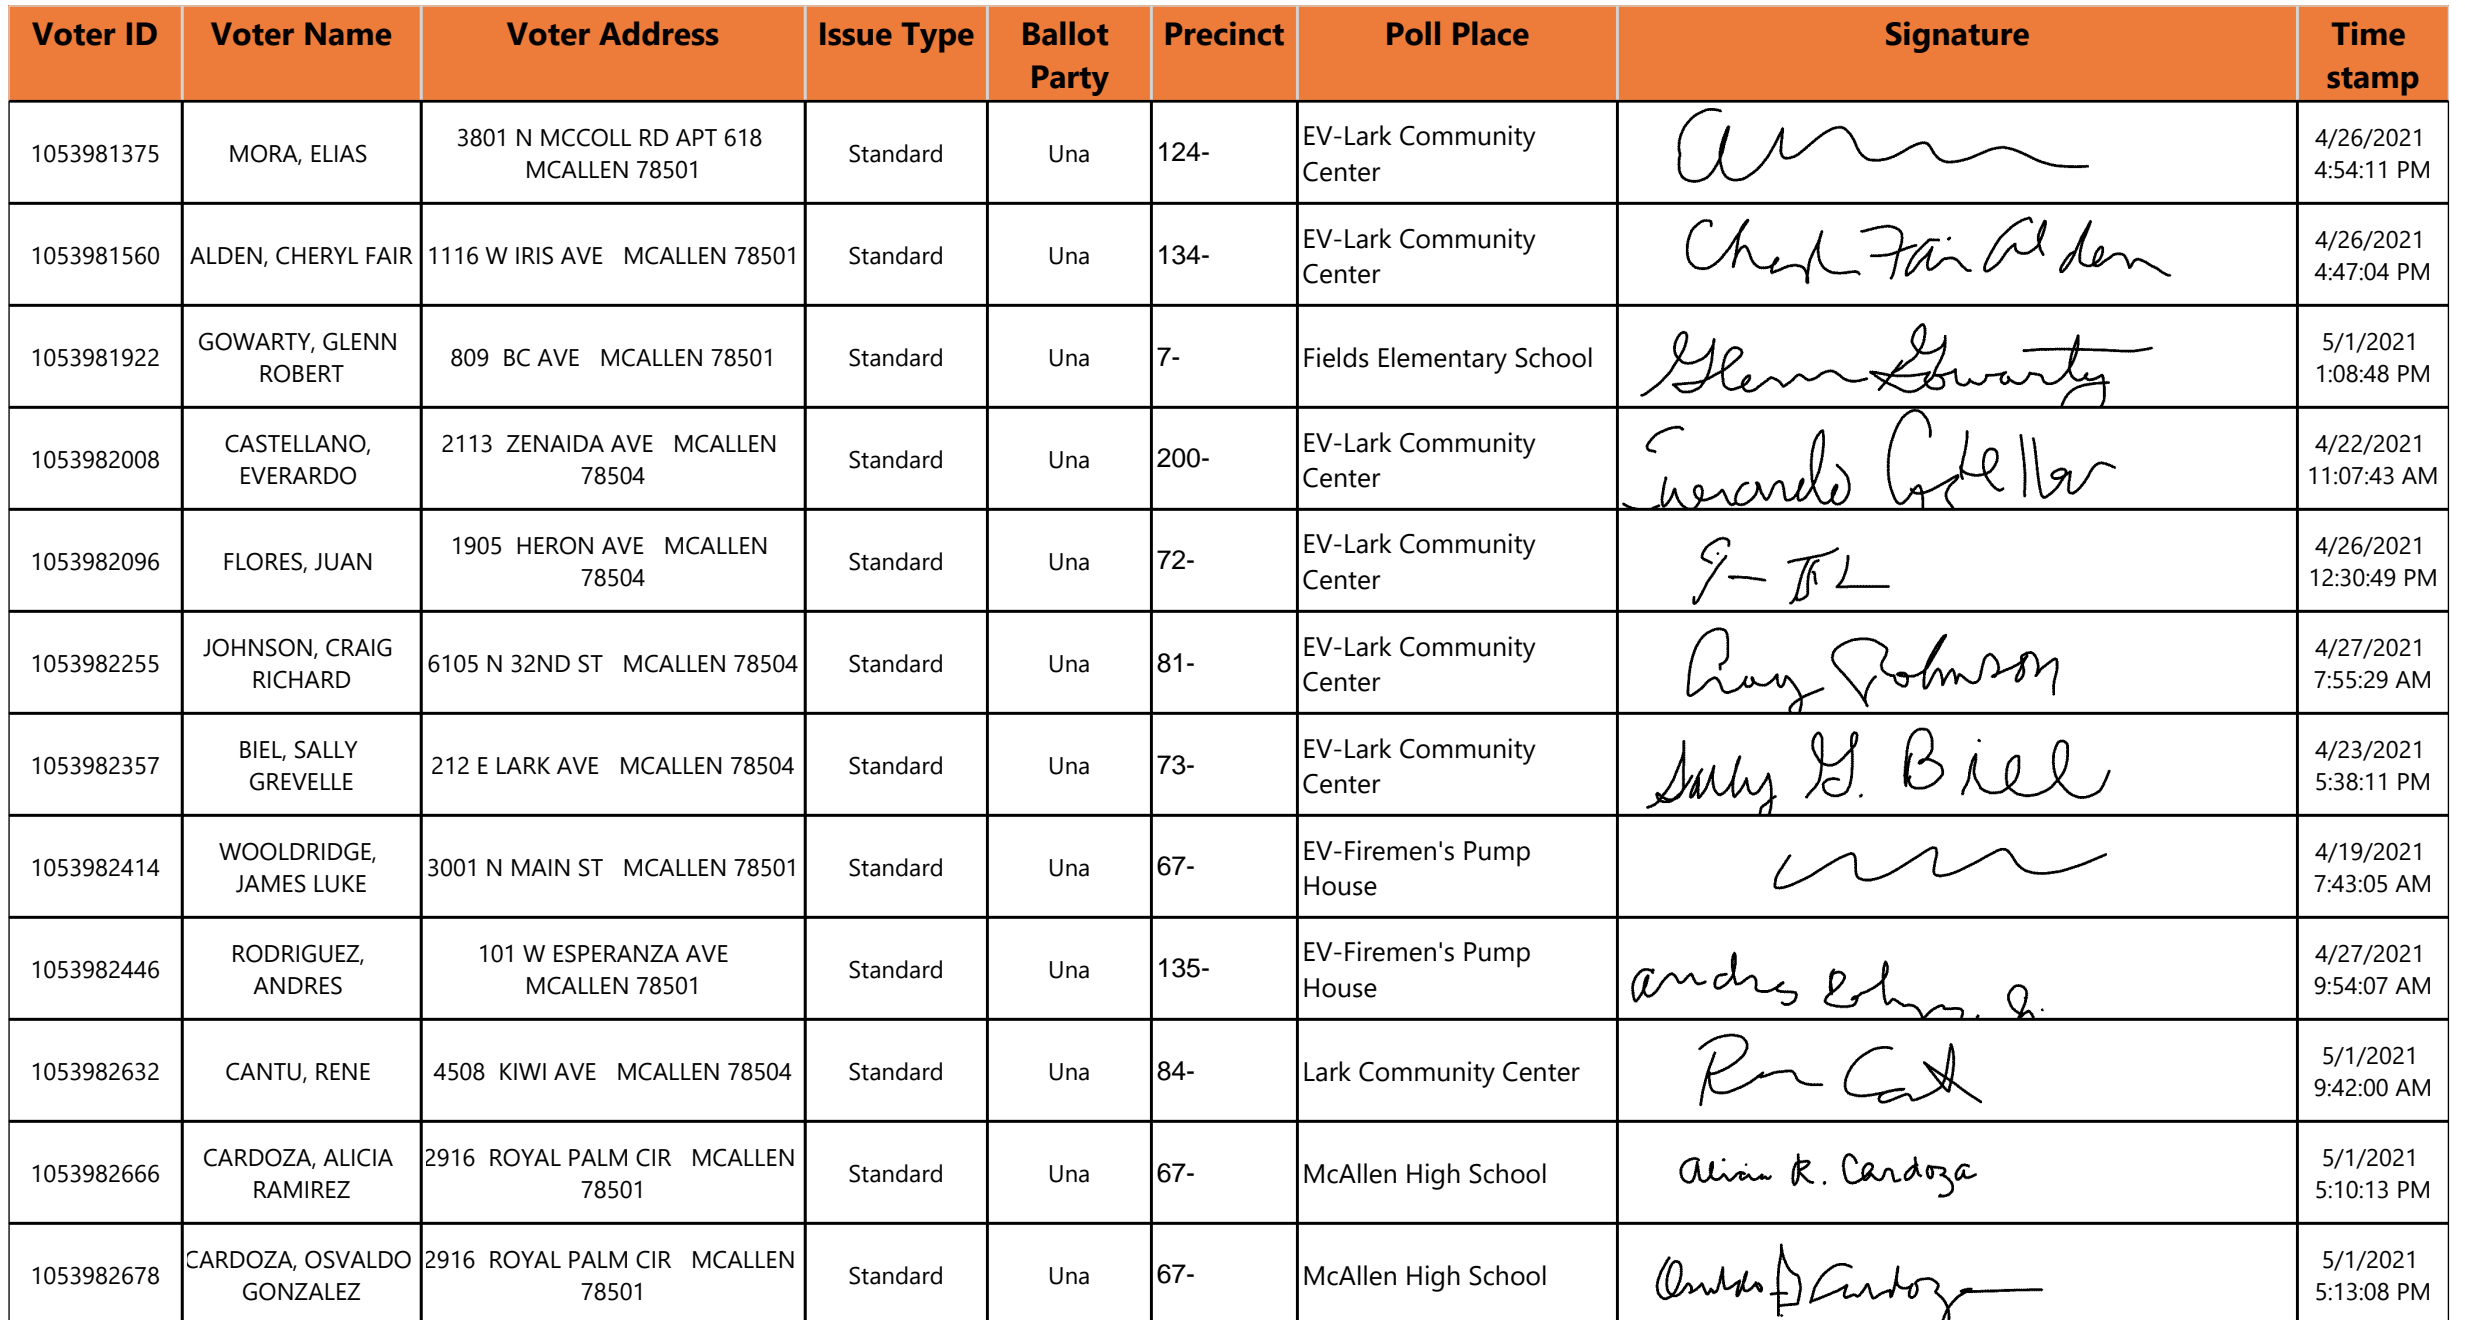 Voter ID Voter Name Voter Address Issue Type Ballot Party Precinct Poll Place Signature Time stamp
1053981375 MORA, ELIAS 3801 N MCCOLL RD APT 618 MCALLEN 78501 Standard Una 124- EV-Lark Community Center 4/26/2021 4:54:11 PM
1053981560 ALDEN, CHERYL FAIR 1116 W IRIS AVE MCALLEN 78501 Standard Una 134- EV-Lark Community Center Cheryl Fair Alden 4/26/2021 4:47:04 PM
1053981922 GOWARTY, GLENN ROBERT 809 BC AVE MCALLEN 78501 Standard Una 7- Fields Elementary School Glenn Gowarty 5/1/2021 1:08:48 PM
1053982008 CASTELLANO, EVERARDO 2113 ZENAIDA AVE MCALLEN 78504 Standard Una 200- EV-Lark Community Center Everardo 4/22/2021 11:07:43 AM
1053982096 FLORES, JUAN 1905 HERON AVE MCALLEN 78504 Standard Una 72- EV-Lark Community Center 4/26/2021 12:30:49 PM
1053982255 JOHNSON, CRAIG RICHARD 6105 N 32ND ST MCALLEN 78504 Standard Una 81- EV-Lark Community Center Craig Johnson 4/27/2021 7:55:29 AM
1053982357 BIEL, SALLY GREVELLE 212 E LARK AVE MCALLEN 78504 Standard Una 73- EV-Lark Community Center Sally G. Biel 4/23/2021 5:38:11 PM
1053982414 WOOLDRIDGE, JAMES LUKE 3001 N MAIN ST MCALLEN 78501 Standard Una 67- EV-Firemen's Pump House 4/19/2021 7:43:05 AM
1053982446 RODRIGUEZ, ANDRES 101 W ESPERANZA AVE MCALLEN 78501 Standard Una 135- EV-Firemen's Pump House Andres 4/27/2021 9:54:07 AM
1053982632 CANTU, RENE 4508 KIWI AVE MCALLEN 78504 Standard Una 84- Lark Community Center 5/1/2021 9:42:00 AM
1053982666 CARDOZA, ALICIA RAMIREZ 2916 ROYAL PALM CIR MCALLEN 78501 Standard Una 67- McAllen High School Alicia R. Cardoza 5/1/2021 5:10:13 PM
1053982678 CARDOZA, OSVALDO GONZALEZ 2916 ROYAL PALM CIR MCALLEN 78501 Standard Una 67- McAllen High School Osvaldo G Cardoza 5/1/2021 5:13:08 PM